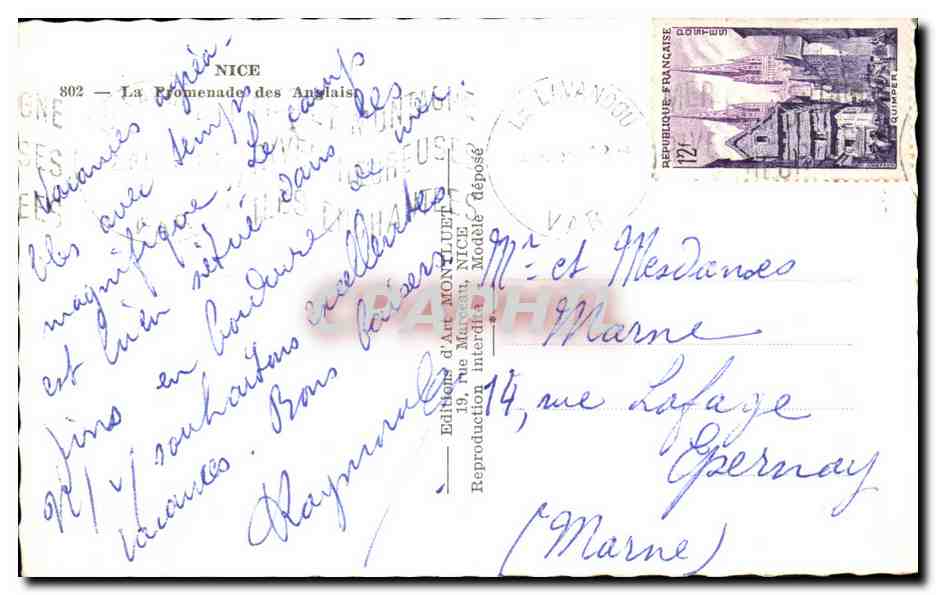 NICE
802 — La Promenade des Anglais
Vacances agréa-
bles avec temps
magnifique. Le camp
est bien situé dans les
pins en bordure de mer.
N/ v/ souhaitons excellentes
vacances. Bons baisers.
Raymonde
Editions d'Art MONTLUET
19, rue Marceau, NICE
Reproduction interdite - Modèle déposé
CPARAMA
LE LAVANDOU
VAR
REPUBLIQUE FRANÇAISE
POSTES
12f
QUIMPER
Mr et Mesdames
Marne
14, rue Lafage
Epernay
(Marne)